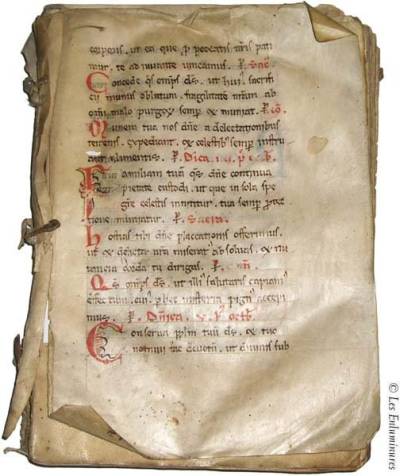 corporis. ut ea que p peccatis nris pati
mur. te adiuuante uincamus. P. Sac
Concede qs omps ds. ut hui sacrifi
cii munus oblatum. fragilitate nram ab
omi malo purget semp & muniat. P. co.
Munera tua nos dne a delectationibus
terrenis expediant. & celestibus semp instru
ant alimentis. P.
Familiam tuā qs dne continua
pietate custodi. ut que in sola spe
gre celestis innititur. tua semp ptec
tione muniatur. P. Sacra.
Hostias tibi dne placationis offerimus.
ut & delicta nra miserat absoluas. & nu
tancia corda tu dirigas. P. com.
Qs omps ds. ut illi salutaris capiam
effectum. cui p hec misteria pign accepi
mus. P. Dnica. v. p octb.
Conserua pplm tuū ds. & tuo
nomini fac deuotū. ut diuinis sub
© Les Enluminures